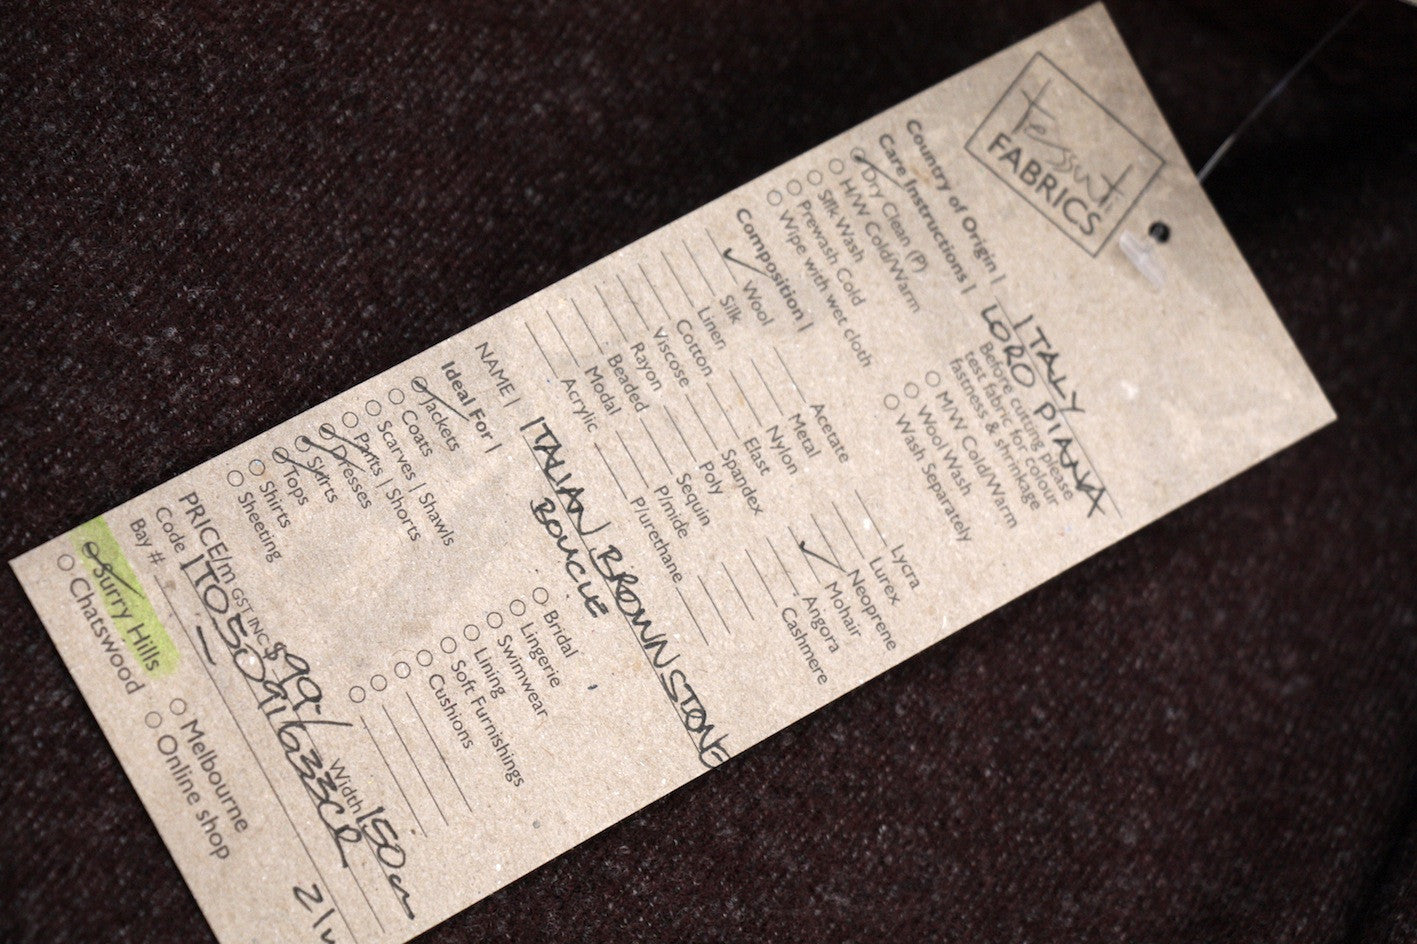 Tessuti
FABRICS
Country of Origin | ITALY
LORO PIANA
Care Instructions |
Before cutting please
test fabric for colour
fastness & shrinkage
Dry Clean (P)
H/W Cold/Warm
Silk Wash
Prewash Cold
Wipe with wet cloth
M/W Cold/Warm
Wool Wash
Wash Separately
Composition |
Wool
Silk
Linen
Cotton
Viscose
Rayon
Beaded
Modal
Acrylic
Acetate
Metal
Nylon
Elast
Spandex
Poly
Sequin
P/mide
P/urethane
Lycra
Lurex
Neoprene
Mohair
Angora
Cashmere
NAME | ITALIAN BROWNSTONE
BOUCLE
Ideal For |
Jackets
Coats
Scarves | Shawls
Pants | Shorts
Dresses
Skirts
Tops
Shirts
Sheeting
Bridal
Lingerie
Swimwear
Lining
Soft Furnishings
Cushions
PRICE/m GST INC $99-/ Width 150cm
Code
Bay #
Surry Hills
Chatswood
Melbourne
Online shop